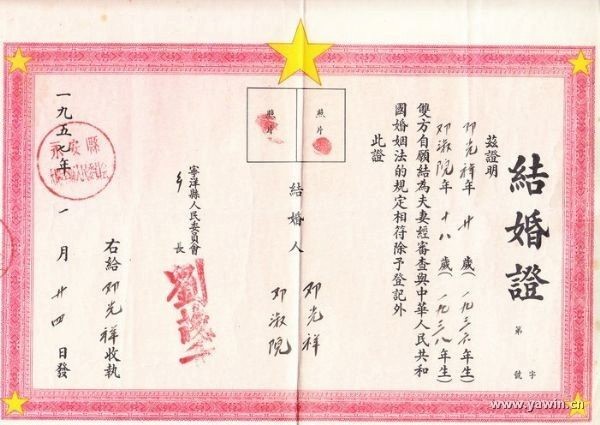 結婚證
字
第 號
茲證明
邓光祥年 廿 歲(一九三六年生)
邓淑院年 十八 歲(一九三八年生)
雙方自願結為夫妻經審查與中華人民共和
國婚姻法的規定相符除予登記外
此證
照片
照片
結婚人 邓光祥
邓淑院
寧洋縣人民委員會
鄉 長 劉
右給 邓光祥 收執
一九五七年 一 月 廿四 日發
永安縣
www.yawin.cn